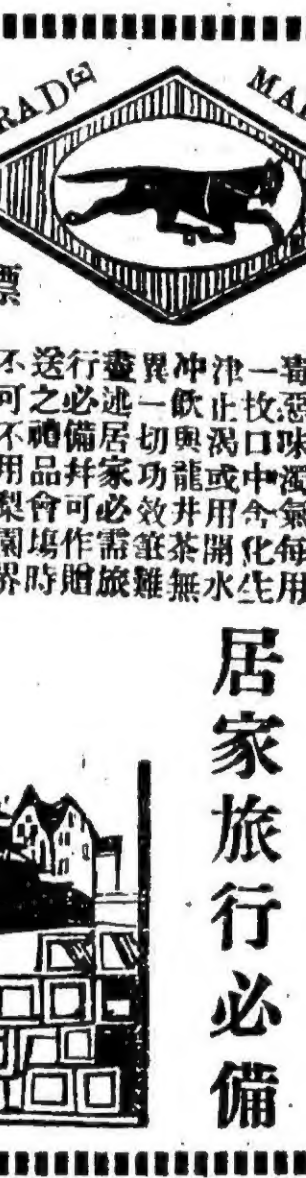 RADE MA
惡味濁氣每用
一枚口中含化生
津止渴或用開水
冲飲與龍井茶無
異一切功效筆難
盡述居家必需旅
行必備幷可作贈
送之禮品會塲時
不可不用梨園界
居家旅行必備